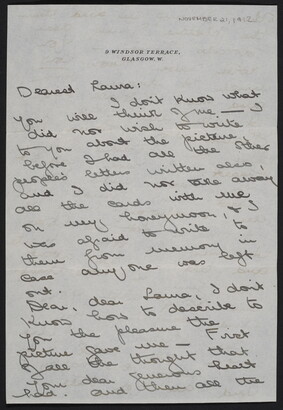 NOVEMBER 21, 1912
9 WINDSOR TERRACE,
GLASGOW. W.
Dearest Laura:
I don't know what
you will think of me — I
did not wish to write
to you about the picture
before I had all the other
people's letters written also,
and I did not take away
all the cards with me
on my honeymoon, & I
was afraid to write to
them from memory in
case anyone was left
out.
Dear, dear Laura, I don't
know how to describe to
you the pleasure the
picture gave me — First
of all the thought that
your dear generous heart
had. and then all the